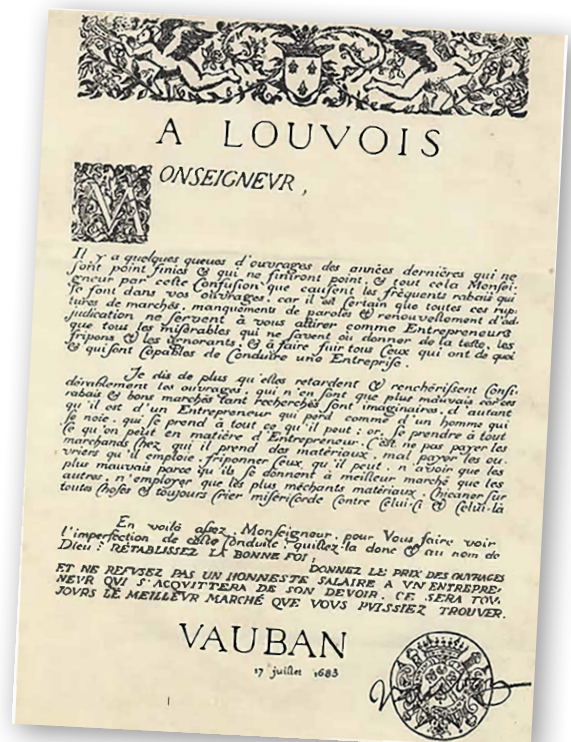 A LOUVOIS
MONSEIGNEVR,
Il y a quelques queues d'ouvrages des années dernières qui ne
sont point finies & qui ne finiront point, & tout cela Monsei-
gneur par ceste Confusion que causent les fréquents rabais qui
se font dans vos ouvrages, car il est Certain que toutes ces rup-
tures de marchés, manquements de paroles & renouvellement d'ad-
judication ne servent à vous attirer comme Entrepreneurs
que tous les misérables qui ne savent où donner de la teste, les
fripons & les ignorants, & à faire fuir tous Ceux qui ont de quoi
& qui sont Capables de Conduire une Entreprise.
Je dis de plus qu'elles retardent & renchérissent Consi-
dérablement les ouvrages, qui n'en sont que plus mauvais car ces
rabais & bons marchés tant recherchés sont imaginaires, d'autant
qu'il est d'un Entrepreneur qui perd comme d'un homme qui
se noie, qui se prend à tout ce qu'il peut; or, se prendre à tout
ce qu'on peut en matière d'Entrepreneur, C'est ne pas payer les
marchands Chez qui il prend des matériaux, mal payer les ou-
vriers qu'il emploie, friponner Ceux qu'il peut, n'avoir que les
plus mauvais parce qu'ils se donnent à meilleur marché que les
autres, n'employer que les plus méchants matériaux, Chicaner sur
toutes Choses & toujours Crier miséricorde Contre Celui-Ci & Celui-là
En voilà assez, Monseigneur, pour Vous faire voir
l'imperfection de ceste Conduite; quittez-la donc & au nom de
Dieu: RÉTABLISSEZ LA BONNE FOI;
DONNEZ LE PRIX DES OUVRAGES
ET NE REFVSEZ PAS UN HONNESTE SALAIRE A VN ENTREPRE-
NEVR QUI S'ACQVITTERA DE SON DEVOIR. CE SERA TOV-
JOVRS LE MEILLEVR MARCHÉ QVE VOVS PVISSIEZ TROUVER.
VAUBAN
17 juillet 1683